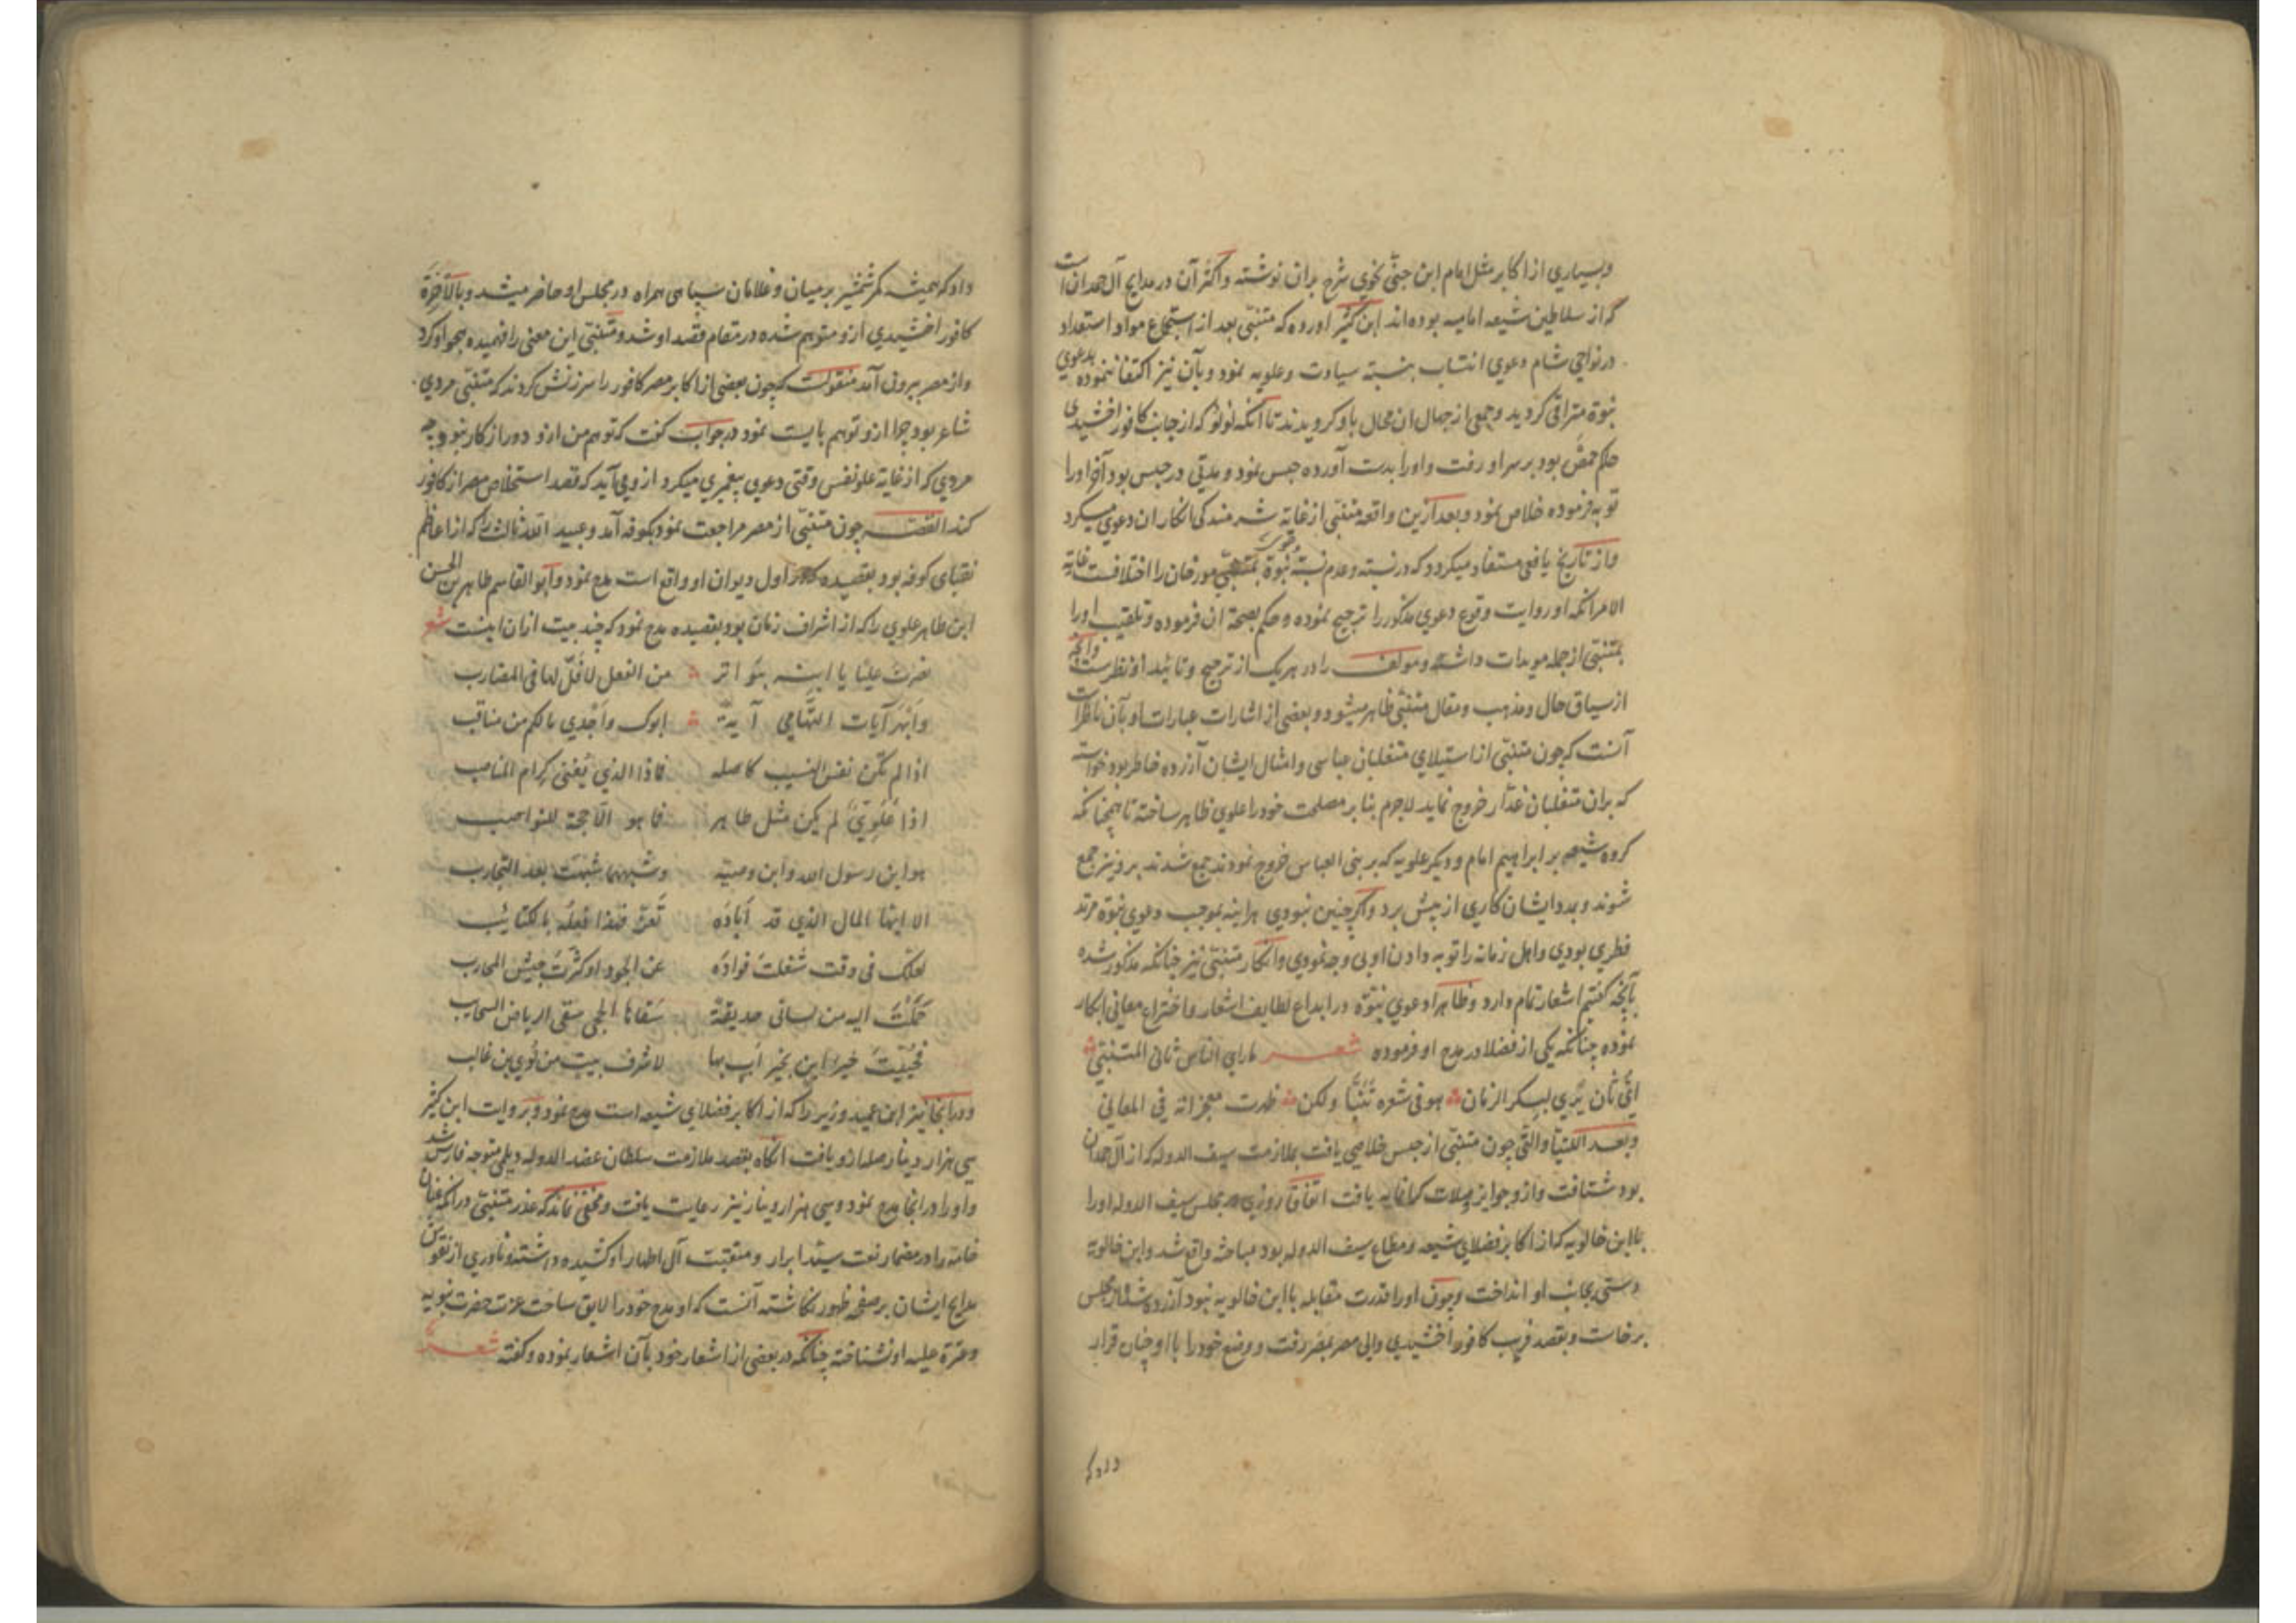 وبسیاری از اکابر مثل امام ابن جنّی نحوی شرح بران نوشته واکثر آن در مدایح آل حمدان است
که از سلاطین شیعه امامیه بوده‌اند ابن کثیر اورده که متنبّی بعد از استجماع مواد استعداد
در نواحی شام دعوی انتساب بنسبة سیادت وعلویه نمود وبآن نیز اکتفا ننموده بدعوی
نبوة مترقی کردید وجمعی از جهال ان محال باو کرویدند تا آنکه لولو که از جانب کافور اخشیدی
حاکم حمص بود بر سر او رفت واورا بدست آورده حبس نمود ومدتی در حبس بود آخر اورا
توبه فرموده خلاص نمود وبعد ازین واقعه متنبّی از غایة شرمندکی انکار ان دعوی میکرد
واز تاریخ یافعی مستفاد میکردد که در نسبة وعدم نسبة دعوی نبوة بمتنبّی مورخان را اختلافست غایة
الامر انکه او روایت وقوع دعوی مذکور را ترجیح نموده وحکم بصحة ان فرموده وتلقیب اورا
بمتنبّی از جمله مویدات داشته ومولف را در هر یک از ترجیح وتائید او نظرست وآنچه
از سیاق حال ومذهب ومقال متنبّی ظاهر میشود وبعضی از اشارات عبارات او بآن ناظرست
آنست که چون متنبّی از استیلای متغلبان عباسی وامثال ایشان آزرده خاطر بود خواست
که بران متغلبان غدّار خروج نماید لاجرم بنا بر مصلحت خود را علوی ظاهر ساخته تا همچنانکه
کروه شیعه بر ابراهیم امام ودیکر علویه که بر بنی العباس خروج نمودند جمع شدند برو نیز جمع
شوند وبمدد ایشان کاری از پیش برد واکر چنین نبودی هراینه بموجب دعوی نبوة مرتد
فطری بودی واهل زمانه را توبه دادن او بی وجه نمودی وانکار متنبّی نیز چنانکه مذکور شده
بآنچه کفتیم اشعار تمام دارد وظاهرا دعوی نبوّة در ابداع لطایف اشعار واختراع معانی ابکار
نموده چنانکه یکی از فضلا در مدح او فرموده شعر ما رای الناس ثانی المتنبّی
ایّ ثان یُری لبکر الزمان هو فی شعره تَنَبّا ولکن ظهرت معجزاته فی المعانی
وبعد اللتیا والتی چون متنبّی از حبس خلاصی یافت بملازمت سیف الدوله که از آل حمدان
بود شتافت وازو جوایز وصلات کمانایه یافت اتفاقا روزی در مجلس سیف الدوله اورا
با ابن خالویه که از اکابر فضلای شیعه ومطاع سیف الدوله بود مباحثه واقع شد وابن خالویه
دستی بجانب او انداخت وچون اورا قدرت مقابله با ابن خالویه نبود آزرده شد واز مجلس
برخاست وبقصد قرب کافور اخشیدی والی مصر بمصر رفت ووضع خود را با او چنان قرار
داد که
داد که همیشه کمر شمشیر بر میان وغلامان سپاهی همراه در مجلس او حاضر میشد وبالآخرة
کافور اخشیدی ازو متوهم شده در مقام قصد او شد ومتنبّی این معنی را فهمیده هجو او کرد
واز مصر بیرون آمد منقولست که چون بعضی از اکابر مصر کافور را سرزنش کردند که متنبّی مردی
شاعر بود چرا ازو توهم بایست نمود در جواب کفت که توهم من ازو دور از کار نبود چه
مردی که از غایة علو نفس وقتی دعوی پیغمبری میکرد ازو می آید که قصد استخلاص مصر از کافور
کند القصه چون متنبّی از مصر مراجعت نمود بکوفه آمد وعبید الله ثالث را که از اعاظم
نقبای کوفه بود بقصیده که در اول دیوان او واقع است مدح نمود وابو القاسم طاهر بن الحسن
ابن طاهر علوی را که از اشراف زمان بود بقصیده مدح نمود که چند بیت ازان اینست شعر
نصرت علیّا یا ابنه ببواتر من الفعل لا فَلّ لها فی المضارب
وابهر آیات التّهامی آیة ابوک واجدی مالکم من مناقب
اذا لم تکن نفس النسیب کاصله فماذا الذی یُغنی کرام المناصب
اذا عَلَویّ لم یکن مثل طاهر فما هو الّا حجة للنواصب
هو ابن رسول الله وابن وصیّه وشبههما شبّهت بعد التجارب
الا ایّها المال الذی قد اَباده تَعَزّ فهذا فعله بالکتایب
لعلّک فی وقت شغلت فواده عن الجود او کثّرت جیش المحارب
حَمَلتُ الیه من لسانی حدیقة سَقاها الحجی سقی الریاض السحایب
فحُیّیتَ خیر ابن بخیر اَب بها لاشرف بیت من لؤی بن غالب
ودر انجا نیز ابن عمید وزیر را که از اکابر فضلای شیعه است مدح نمود وبروایت ابن کثیر
سی هزار دینار صله ازو یافت انکاه بقصد ملازمت سلطان عضد الدوله دیلمی متوجه فارس شد
واورا در انجا مدح نمود وسی هزار دینار نیز رعایت یافت ومخفی نماند که عذر متنبّی در انکه عنان
خامه را در مضمار نعت سیّد ابرار ومنقبت آل اطهار او کشیده داشته ونادری از نقوش
مدایح ایشان بر صفحه ظهور نکاشته آنست که او مدح خود را لایق ساحت عزت حضرت نبویه
وعترة علیه او نشناخته چنانکه در بعضی از اشعار خود بآن اشعار نموده وکفته شعر